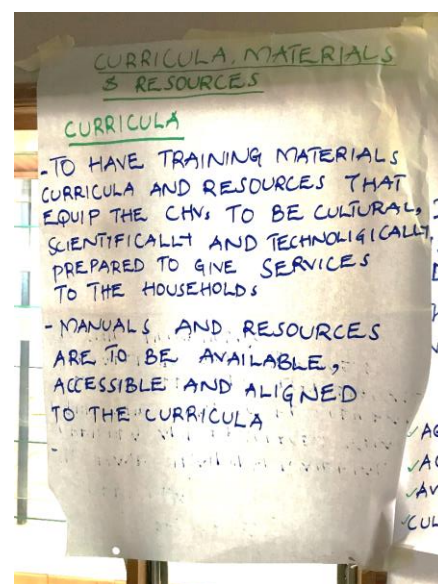 CURRICULA, MATERIALS
& RESOURCES
CURRICULA
- TO HAVE TRAINING MATERIALS
CURRICULA AND RESOURCES THAT
EQUIP THE CHVs TO BE CULTURAL,
SCIENTIFICALLY AND TECHNOLIGICALLY
PREPARED TO GIVE SERVICES
TO THE HOUSEHOLDs
- MANUALS AND RESOURCES
ARE TO BE AVAILABLE,
ACCESSIBLE AND ALIGNED
TO THE CURRICULA
-